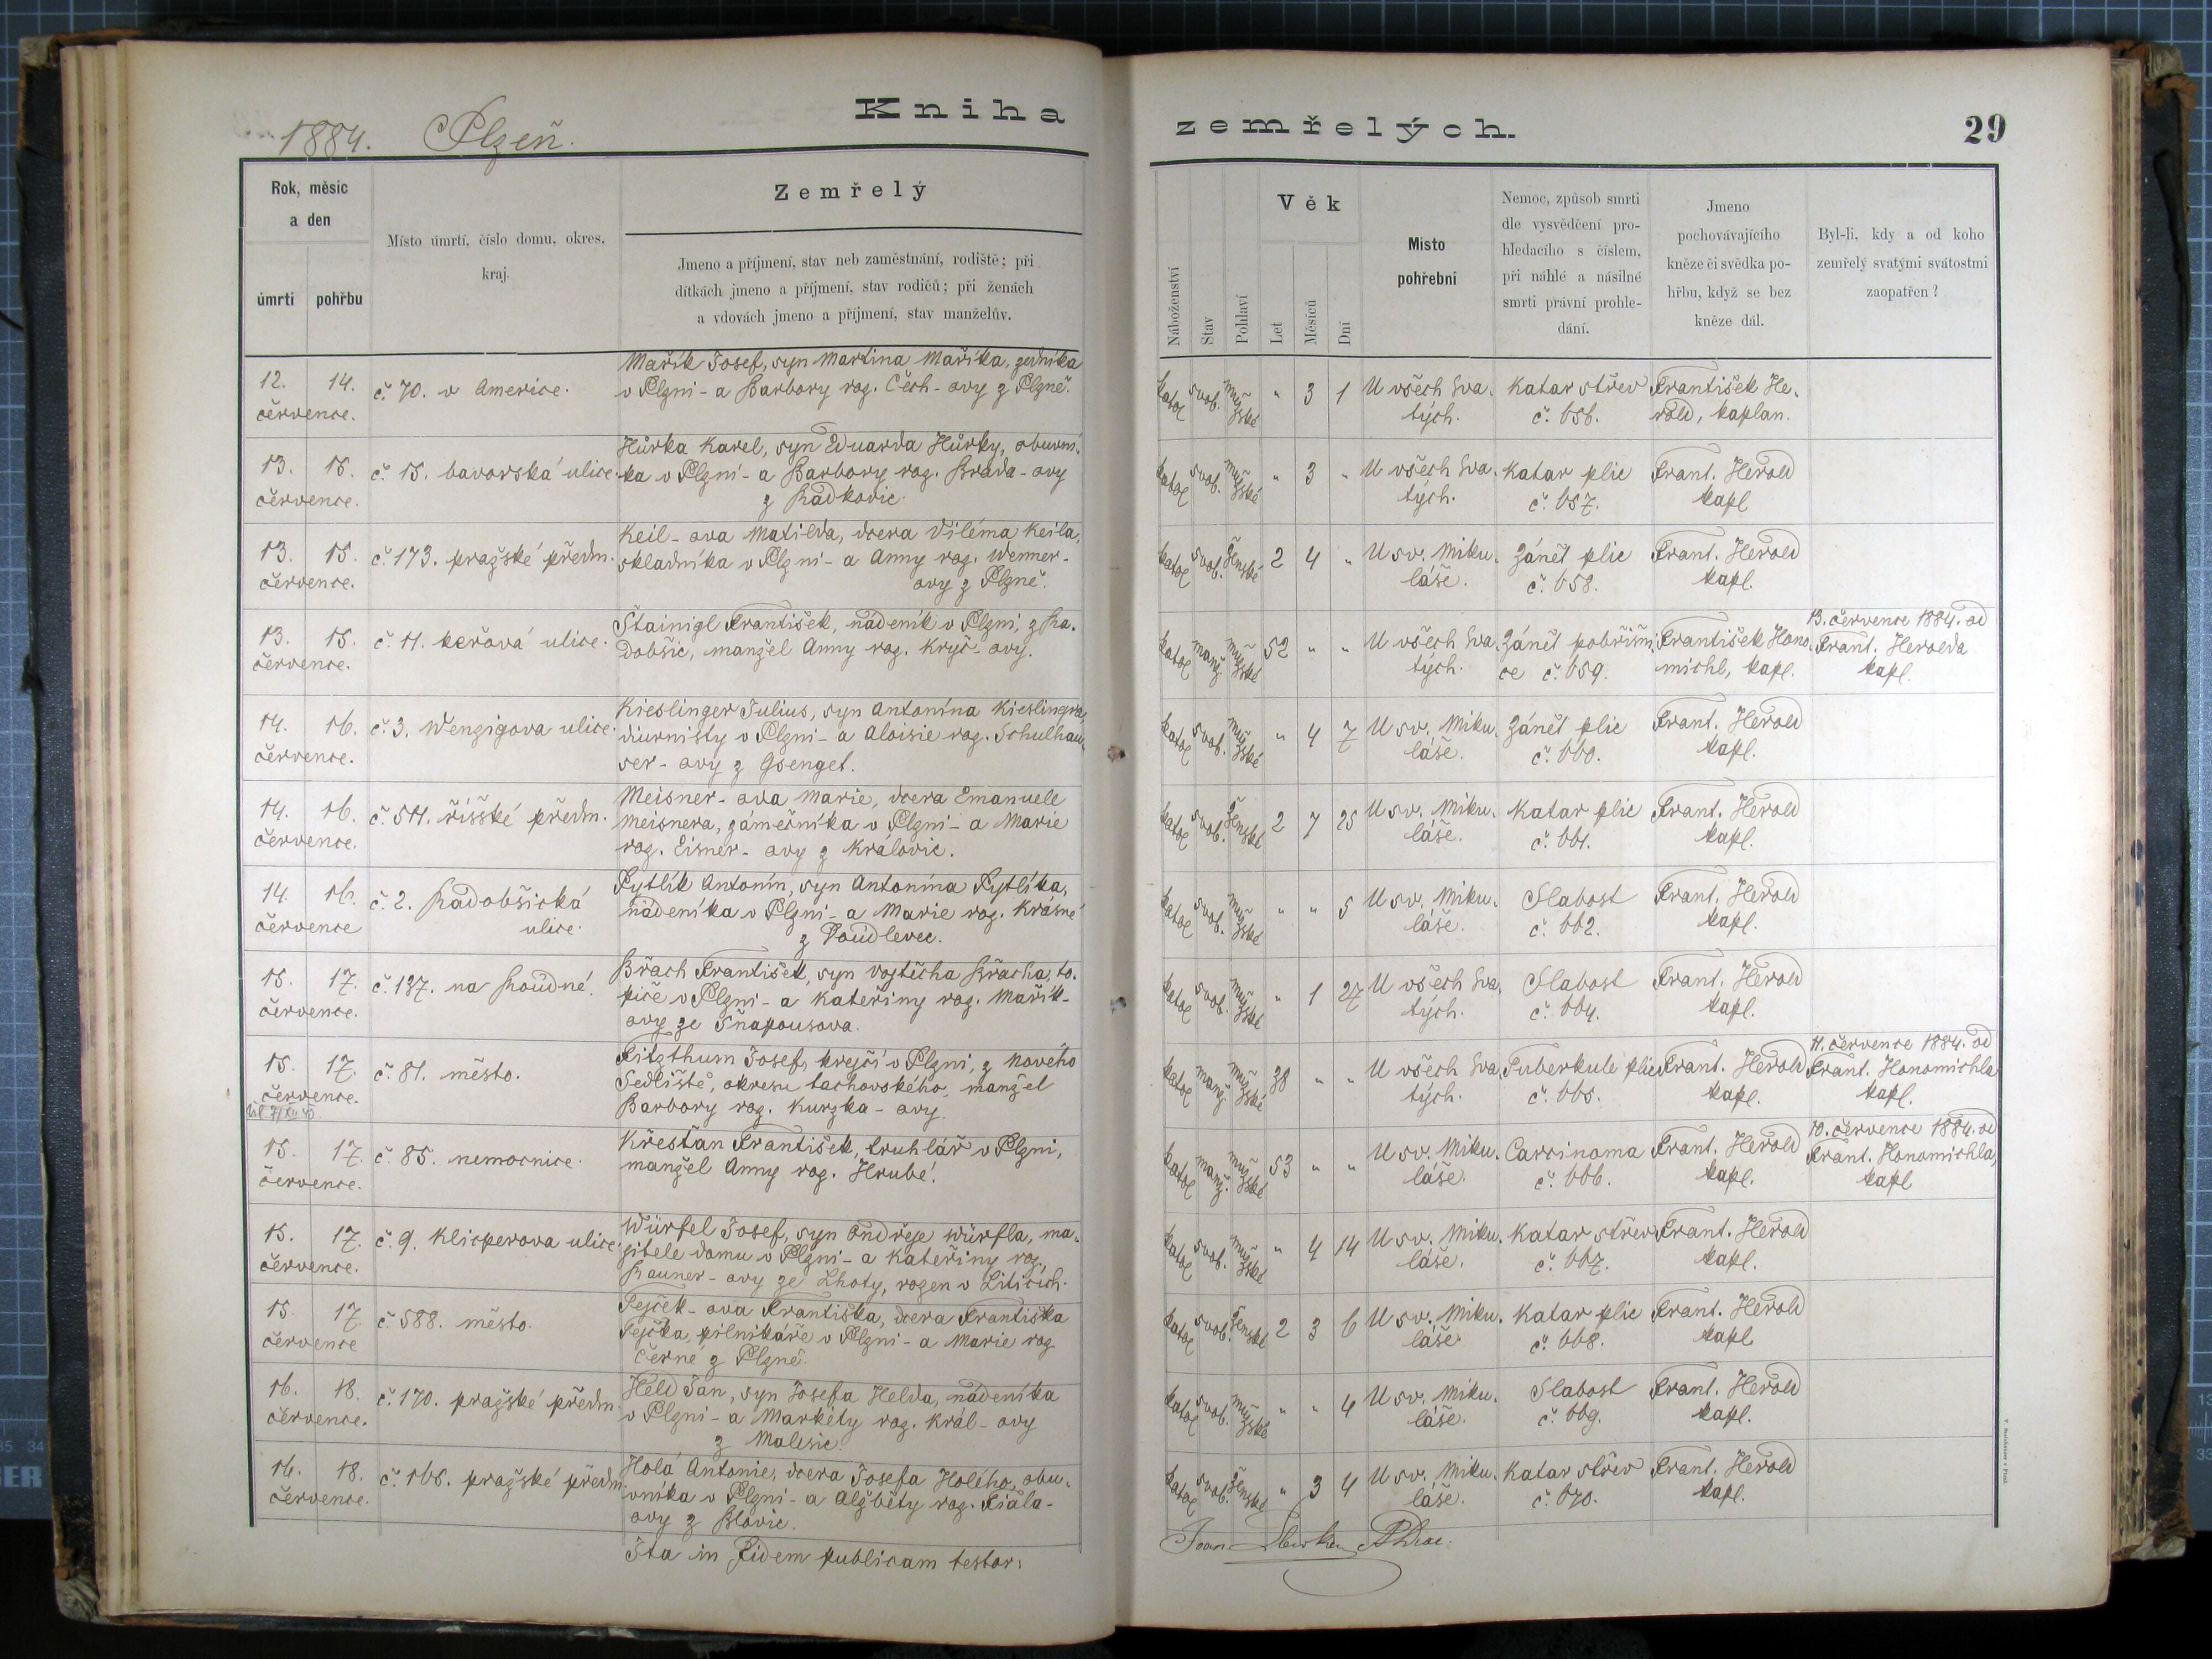 Kniha
zemřelých.
29
1884. Plzeň.
Rok, měsíc
a den
úmrtí
pohřbu
Místo úmrtí, číslo domu, okres,
kraj.
Zemřelý
Jmeno a příjmení, stav neb zaměstnání, rodiště; při
dítkách jmeno a příjmení, stav rodičů; při ženách
a vdovách jmeno a příjmení, stav manželův.
Náboženství
Stav
Pohlaví
Věk
Let
Měsíců
Dní
Místo
pohřební
Nemoc, způsob smrti
dle vysvědčení pro-
hledacího s číslem,
při náhlé a násilné
smrti právní prohle-
dání.
Jmeno
pochovávajícího
kněze či svědka po-
hřbu, když se bez
kněze dál.
Byl-li, kdy a od koho
zemřelý svatými svátostmi
zaopatřen?
12. 14.
července.
č. 70. v Americe.
Mařík Josef, syn Martina Maříka, zedníka
v Plzni - a Barbory roz. Čech - ovy z Plzně.
katol svob. mužské " 3 1
U všech Sva-
tých.
Katar střev
č. 656.
František He-
rold, kaplan.
13. 15.
července.
č. 15. bavorská ulice.
Hůrka Karel, syn Eduarda Hůrky, obuvní-
ka v Plzni - a Barbory roz. Brada - ovy
z Radkovic.
katol svob. mužské " 3 "
U všech Sva-
tých.
Katar plic
č. 657.
Frant. Herold
kapl
13. 15.
července.
č. 173. pražské předm.
Keil - ova Matilda, dcera Viléma Keila,
skladníka v Plzni - a Anny roz. Wenner-
ovy z Plzně.
katol svob. ženské 2 4 "
U sv. Miku-
láše.
Zánět plic
č. 658.
Frant. Herold
kapl.
13. 15.
července.
č. 11. keřová ulice.
Štainigl František, nádeník v Plzni, z Ra-
dobšic, manžel Anny roz. Kryč - ovy.
katol manž mužské 52 " "
U všech Sva-
tých.
Zánět pobřišni-
ce č. 659.
František Hono-
michl, kapl.
13. července 1884. od
Frant. Herolda
kapl.
14. 16.
července.
č. 3. Wenzigova ulice.
Kieslinger Julius, syn Antonína Kieslingra,
diurnisty v Plzni - a Aloisie roz. Schulhau-
ser - ovy z Gsenget.
katol svob. mužské " 4 7
U sv. Miku-
láše.
Zánět plic
č. 660.
Frant. Herold
kapl.
14. 16.
července.
č. 511. říšské předm.
Meisner - ova Marie, dcera Emanuele
Meisnera, zámečníka v Plzni - a Marie
roz. Eisner - ovy z Královic.
katol svob. ženské 2 7 25
U sv. Miku-
láše.
Katar plic
č. 661.
Frant. Herold
kapl.
14. 16.
července
č. 2. Radobšická
ulice.
Pytlík Antonín, syn Antonína Pytlíka,
nádeníka v Plzni - a Marie roz. Krásné
z Doudlevec.
katol svob. mužské " " 5
U sv. Miku-
láše.
Slabost
č. 662.
Frant. Herold
kapl.
15. 17.
července.
č. 137. na Roudné.
Břach František, syn Vojtěcha Břacha, to-
piče v Plzni - a Kateřiny roz. Mařík-
ovy ze Šňapousova.
katol svob. mužské " 1 27
U všech Sva-
tých.
Slabost
č. 664.
Frant. Herold
kapl.
15. 17.
července.
č. 81. město.
Fitzthum Josef, krejčí v Plzni, z Nového
Sedliště, okresu tachovského, manžel
Barbory roz. Kurzka - ovy.
katol manž mužské 38 " "
U všech Sva-
tých.
Tuberkule plic
č. 665.
Frant. Herold
kapl.
11. července 1884. od
Frant. Honomichla
kapl.
15. 17.
července.
č. 85. nemocnice.
Křesťan František, truhlář v Plzni,
manžel Anny roz. Hrubé.
katol manž. mužské 53 " "
U sv. Miku-
láše.
Carcinoma
č. 666.
Frant. Herold
kapl.
10. července 1884. od
Frant. Honomichla,
kapl
15. 17.
července.
č. 9. Klicperova ulice.
Würfel Josef, syn Ondřeje Würfla, ma-
jitele domu v Plzni - a Kateřiny roz.
Rauner - ovy ze Lhoty, rozen v Liticích.
katol svob. mužské " 4 14
U sv. Miku-
láše.
Katar střev
č. 667.
Frant. Herold
kapl.
15. 17.
července
č. 588. město.
Pejček - ova Františka, dcera Františka
Pejčka, pilníkáře v Plzni - a Marie roz
Černé z Plzně.
katol svob. ženské 2 3 6
U sv. Miku-
láše
Katar plic
č. 668.
Frant. Herold
kapl
16. 18.
července.
č. 170. pražské předm.
Held Jan, syn Josefa Helda, nádeníka
v Plzni - a Markéty roz. Král - ovy
z Malesic.
katol svob. mužské " " 4
U sv. Miku-
láše.
Slabost
č. 669.
Frant. Herold
kapl.
16. 18.
července.
č. 168. pražské předm.
Holá Antonie, dcera Josefa Holého, obu-
vníka v Plzni - a Alžběty roz. Fiala-
ovy z Blovic.
katol svob. ženské " 3 4
U sv. Miku-
láše.
Katar střev
č. 670.
Frant. Herold
kapl.
Ita in fidem publicam testor: